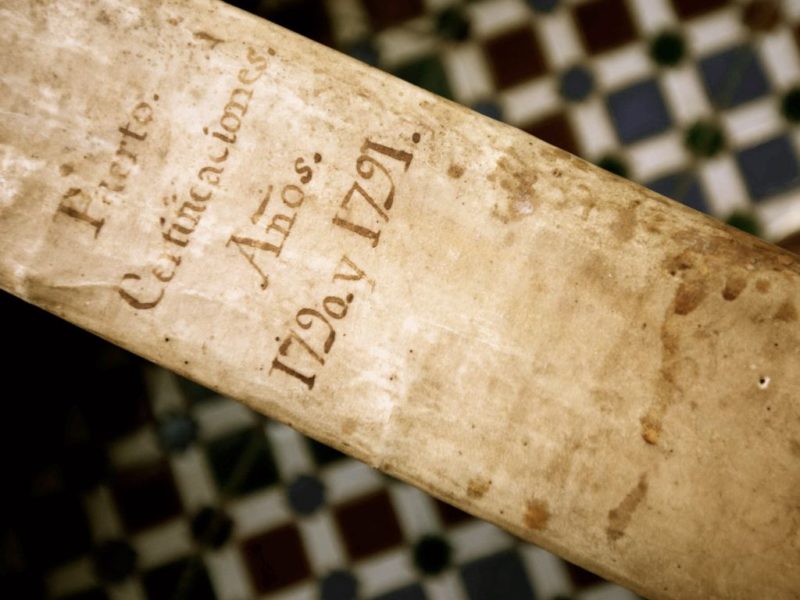 Puerto.
Certificaciones.
Años.
1790. y 1791.